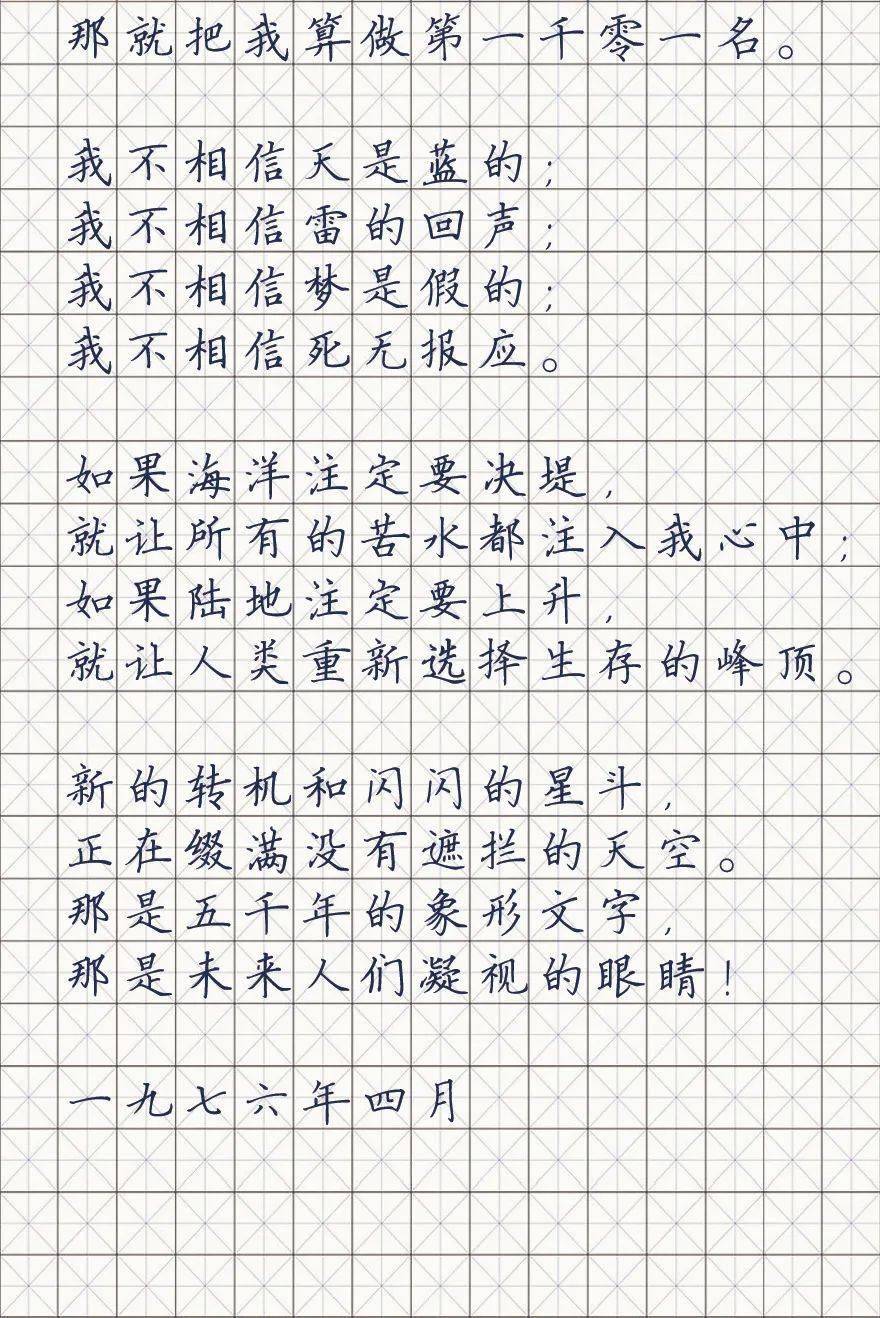 那就把我算做第一千零一名。
我不相信天是蓝的；
我不相信雷的回声；
我不相信梦是假的；
我不相信死无报应。
如果海洋注定要决堤，
就让所有的苦水都注入我心中；
如果陆地注定要上升，
就让人类重新选择生存的峰顶。
新的转机和闪闪的星斗，
正在缀满没有遮拦的天空。
那是五千年的象形文字，
那是未来人们凝视的眼睛！
一九七六年四月